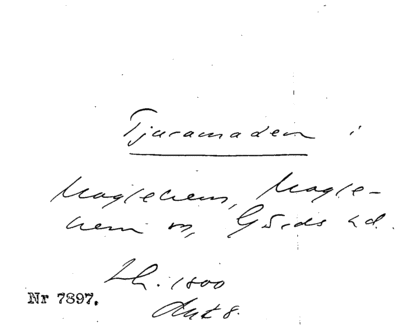 Tjuramaden i
Maglehem, Magle-
hem sn, Gärds hd.
Lh. 1800
Akt 8.
Nr 7897.